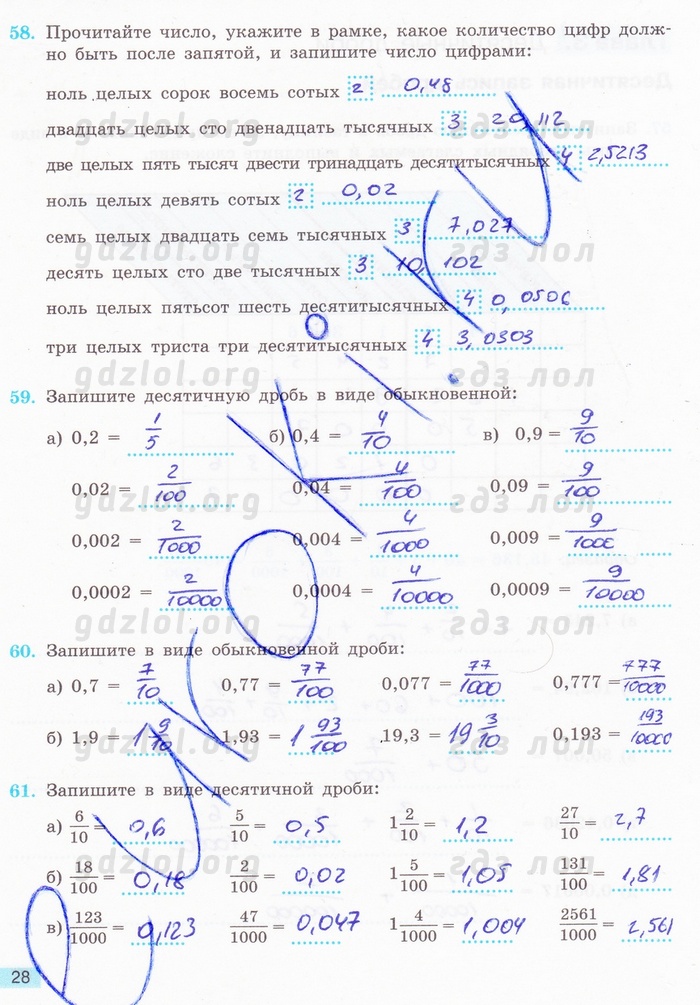 58. Прочитайте число, укажите в рамке, какое количество цифр долж-
но быть после запятой, и запишите число цифрами:
ноль целых сорок восемь сотых 2 0,48
двадцать целых сто двенадцать тысячных 3 20,112
две целых пять тысяч двести тринадцать десятитысячных 4 2,5213
ноль целых девять сотых 2 0,02
семь целых двадцать семь тысячных 3 7,027
десять целых сто две тысячных 3 10,102
ноль целых пятьсот шесть десятитысячных 4 0,0506
три целых триста три десятитысячных 4 3,0303
gdzlol.org гдз лол
59. Запишите десятичную дробь в виде обыкновенной:
а) 0,2 = 1/5 б) 0,4 = 4/10 в) 0,9 = 9/10
0,02 = 2/100 0,04 = 4/100 0,09 = 9/100
0,002 = 2/1000 0,004 = 4/1000 0,009 = 9/1000
0,0002 = 2/10000 0,0004 = 4/10000 0,0009 = 9/10000
60. Запишите в виде обыкновенной дроби:
а) 0,7 = 7/10 0,77 = 77/100 0,077 = 77/1000 0,777 = 777/10000
б) 1,9 = 1 9/10 1,93 = 1 93/100 19,3 = 19 3/10 0,193 = 193/10000
61. Запишите в виде десятичной дроби:
а) 6/10 = 0,6 5/10 = 0,5 1 2/10 = 1,2 27/10 = 2,7
б) 18/100 = 0,18 2/100 = 0,02 1 5/100 = 1,05 131/100 = 1,81
в) 123/1000 = 0,123 47/1000 = 0,047 1 4/1000 = 1,004 2561/1000 = 2,561
28